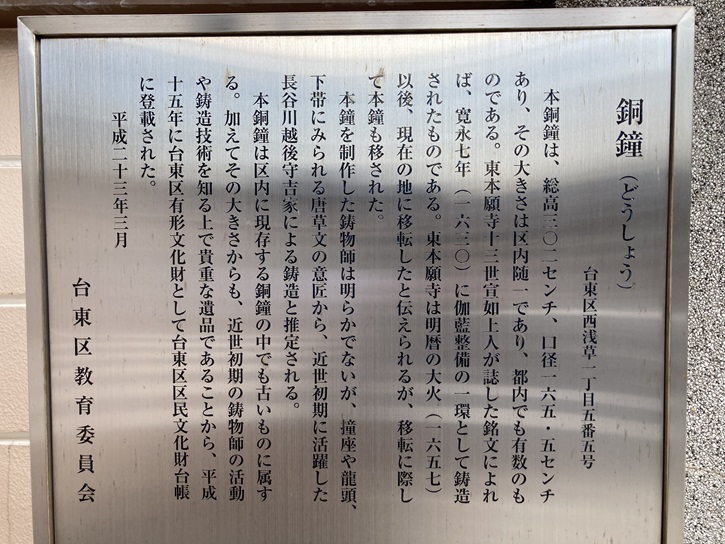 銅鐘(どうしょう)
台東区西浅草一丁目五番五号
本銅鐘は、総高三〇二センチ、口径一六五・五センチ
あり、その大きさは区内随一であり、都内でも有数のも
のである。東本願寺十三世宣如上人が誌した銘文によれ
ば、寛永七年(一六三〇)に伽藍整備の一環として鋳造
されたものである。東本願寺は明暦の大火(一六五七)
以後、現在の地に移転したと伝えられるが、移転に際し
て本鐘も移された。
本鐘を制作した鋳物師は明らかでないが、撞座や龍頭、
下帯にみられる唐草文の意匠から、近世初期に活躍した
長谷川越後守吉家による鋳造と推定される。
本銅鐘は区内に現存する銅鐘の中でも古いものに属す
る。加えてその大きさからも、近世初期の鋳物師の活動
や鋳造技術を知る上で貴重な遺品であることから、平成
十五年に台東区有形文化財として台東区区民文化財台帳
に登載された。
平成二十三年三月
台東区教育委員会